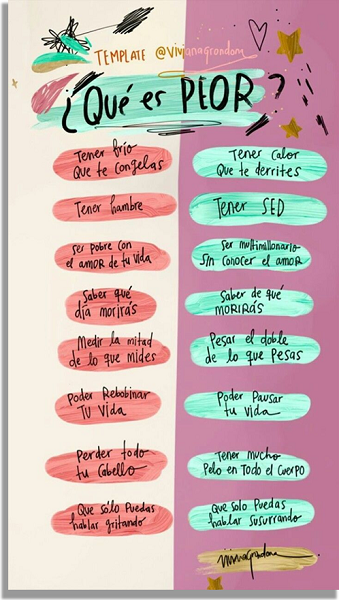 TEMPLATE @vivianagrondona
¿Qué es PEOR?
Tener frío
Que te congelas
Tener Calor
Que te derrites
Tener hambre
Tener SED
Ser pobre con
el amor de tu vida
Ser multimillonario
Sin conocer el amor
Saber qué
día morirás
Saber de qué
MORIRÁS
Medir la mitad
de lo que mides
Pesar el doble
de lo que pesas
Poder Rebobinar
TU VIDA
Poder Pausar
tu vida
Perder todo
tu Cabello
Tener mucho
Pelo en Todo el Cuerpo
Que sólo Puedas
hablar gritando
Que solo Puedas
hablar susurrando
vivianagrondona